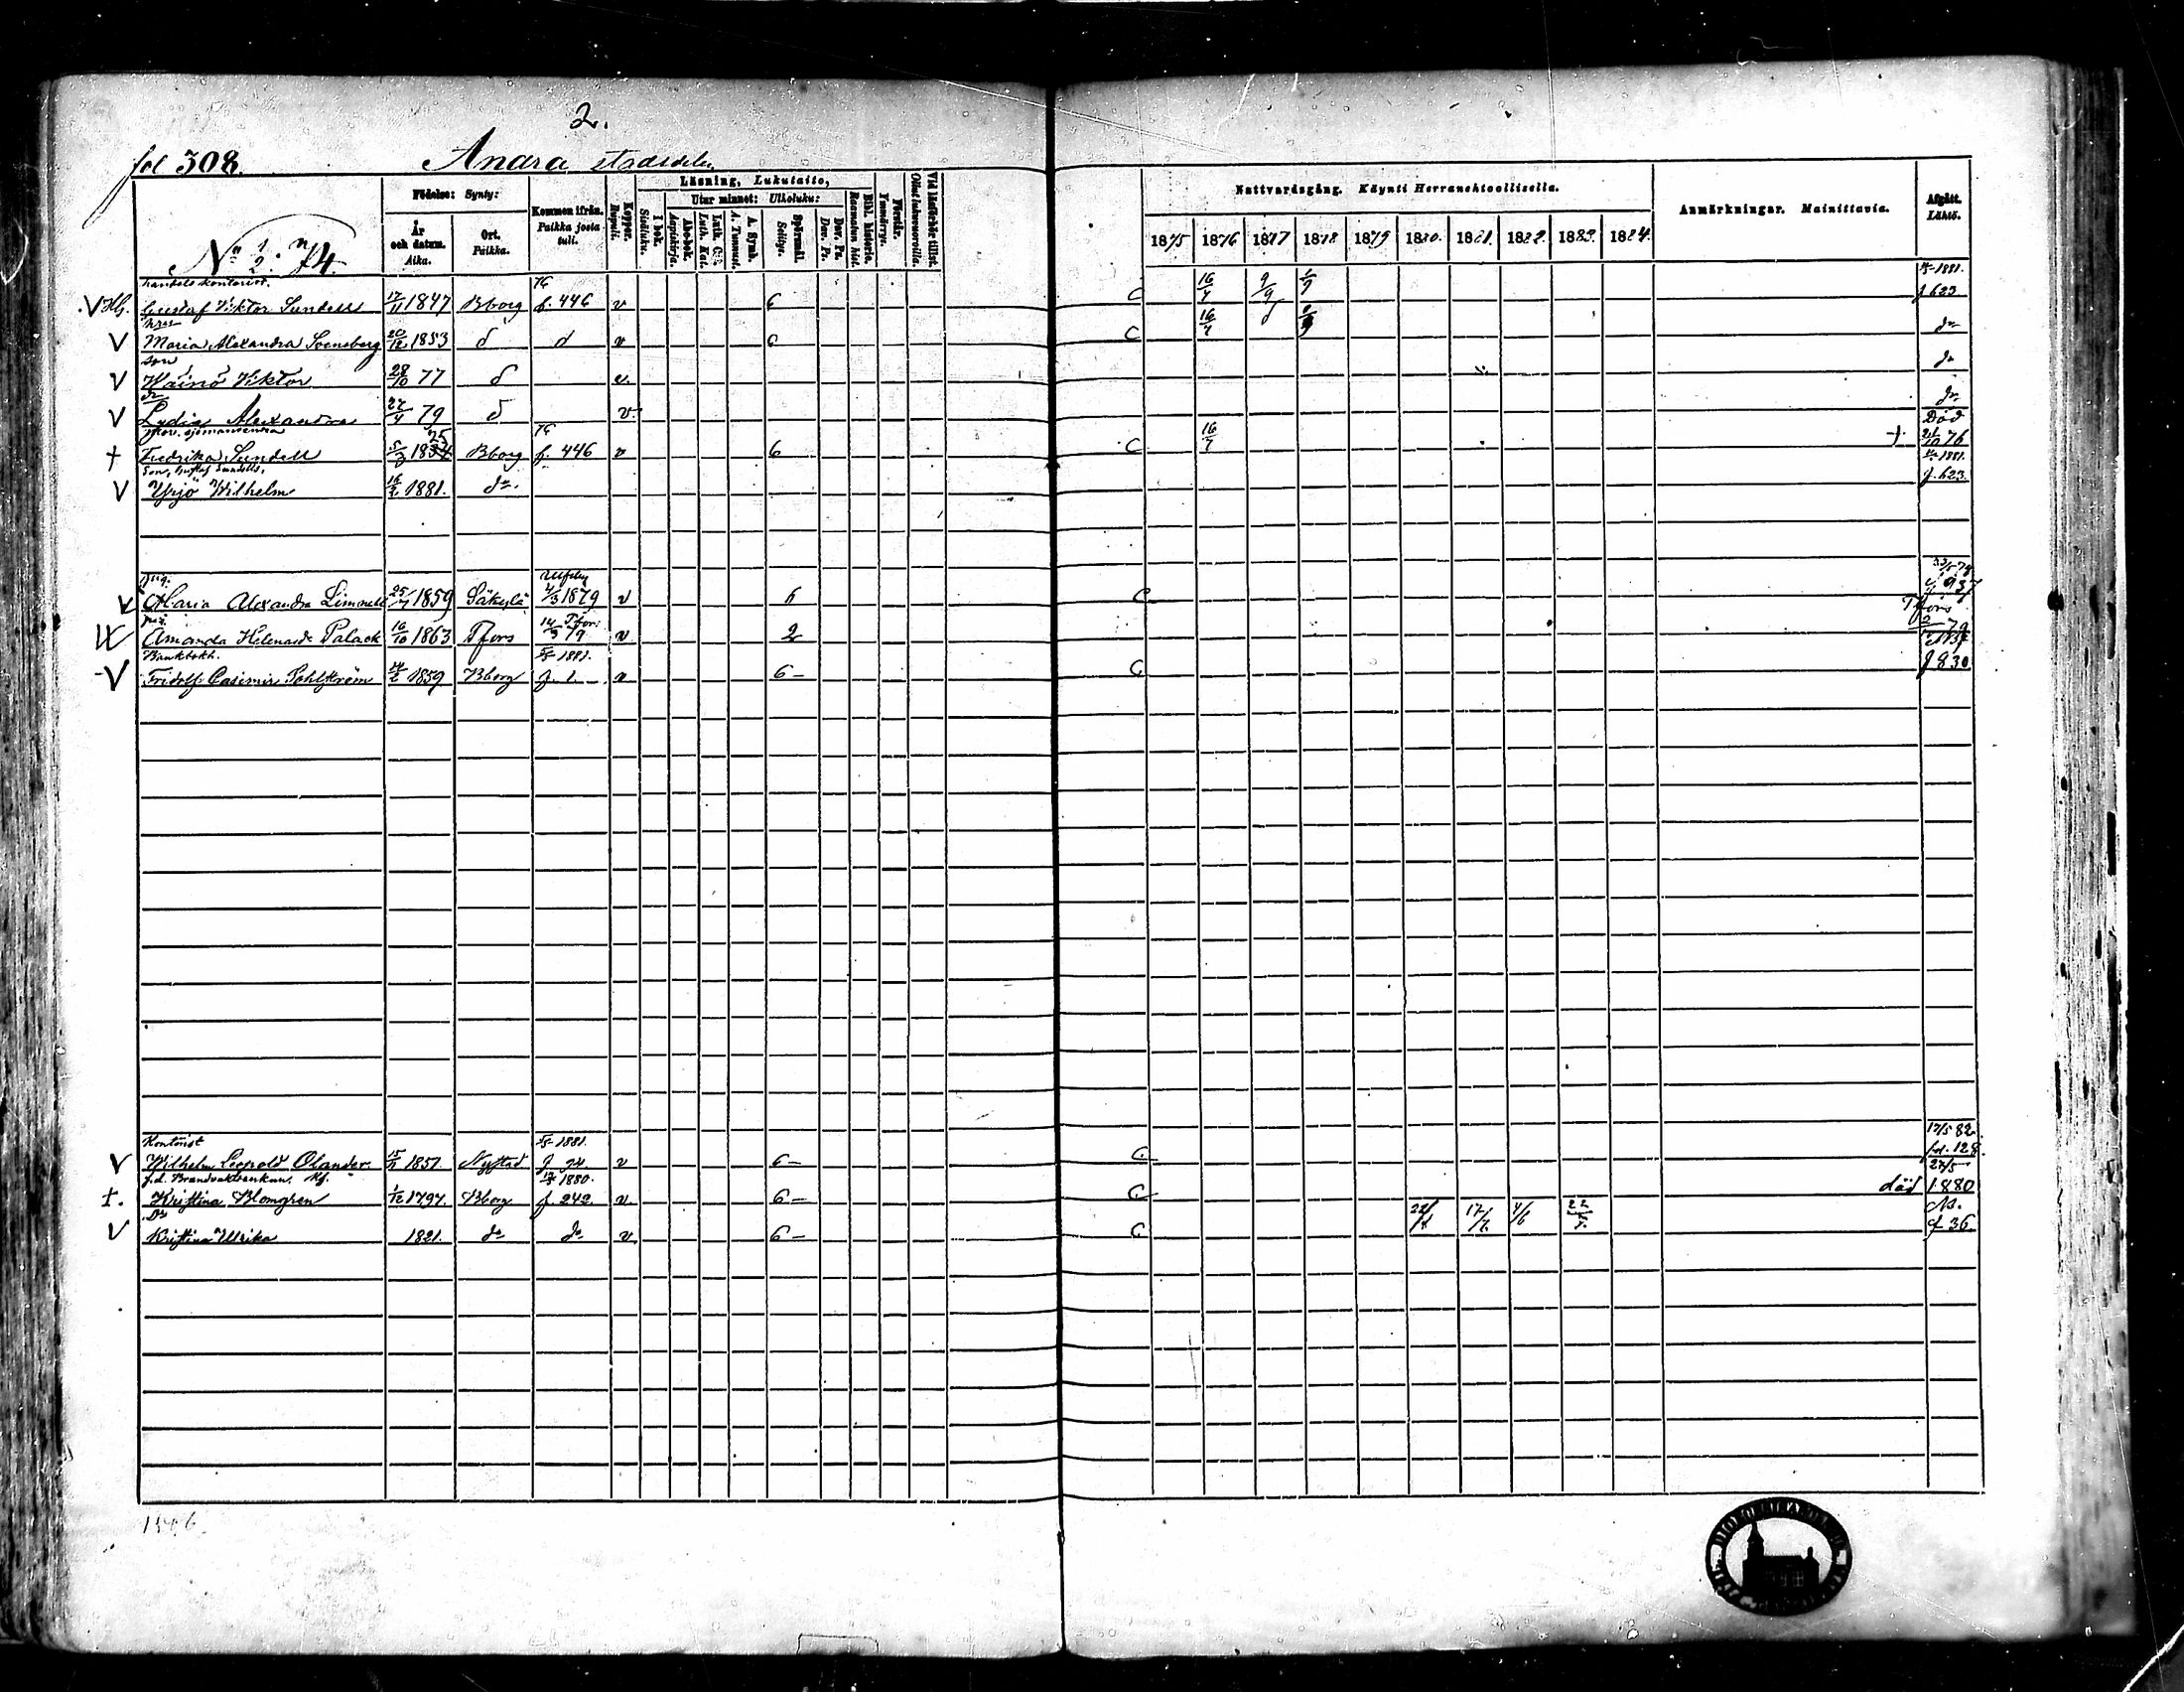 2.
fol 308. Andra stadsdelen
Nº 1/2. n 74.
Födelse: Synty:
År och datum. Aika.
Ort. Paikka.
Kommen ifrån. Paikka josta tuli.
Koppor. Rupuli.
Läsning, Lukutaito,
I bok. Sisäluku.
Utur minnet: Ulkoluku:
Abc-bok. Aapiskirja.
Luth. C:s. Luth. Kat.
A. Symb. A. Tunnust.
Spörsmål. Selitys.
Dav. Ps. Dav. Ps.
Bibl. historia. Raamatun hist.
Förstår. Ymmärrys.
Vid läsförhör tillst. Ollut lukuvuoroilla.
Nattvardsgång. Käynti Herranehtoollisella.
1875 1876 1877 1878 1879 1880. 1881. 1882. 1883. 1884.
Anmärkningar. Mainittavia.
Afgått. Lähtö.
handelskontorist. 76 1881.
Gustaf Viktor Sundell 17/11 1847 Bborg f. 446 v 6 C 16/4 9/9 f 623
Maria Alexandra Svensberg 20/12 1853 d d v 6 C 16/4 do
son
Wäinö Viktor 28/10 77 d v. do
Lydia Alexandra 22/4 79 d v. do
sjömansenka 25 76 Död
† Fredrika Sundell 5/3 1834 Bborg f. 446 v 6 C 16/4 † 21/10 76
Son, Gustaf Sundells, 1881.
Yrjö Wilhelm 16/2 1881. do. f. 623.
pig. Ulfsby
Maria Alexandra Limnell 25/7 1859 Säkylä 4/3 1879 v 6 C f 937
pig. Tfors Tfors
Amanda Helena Palack 16/10 1863 Tfors 14/3 79 v 2 79
Bankbokh. 1881.
Fridolf Casimir Pohlström 1859 Bborg f. 1. v 6 – C f 830
Kontorist 1881. 17/5 82
Wilhelm Leopold Olander. 1857. Nystad f 94. v 6 – C fol. 128.
f.d. Brandvaktsenkan, 1880. 27/5
†. Kristina Blomgren 1797. Bborg f 242. v. 6 – C död 1880
Dr
Kristina Ulrika 1821. do do v 6 – C 17/6 4/6 f 36